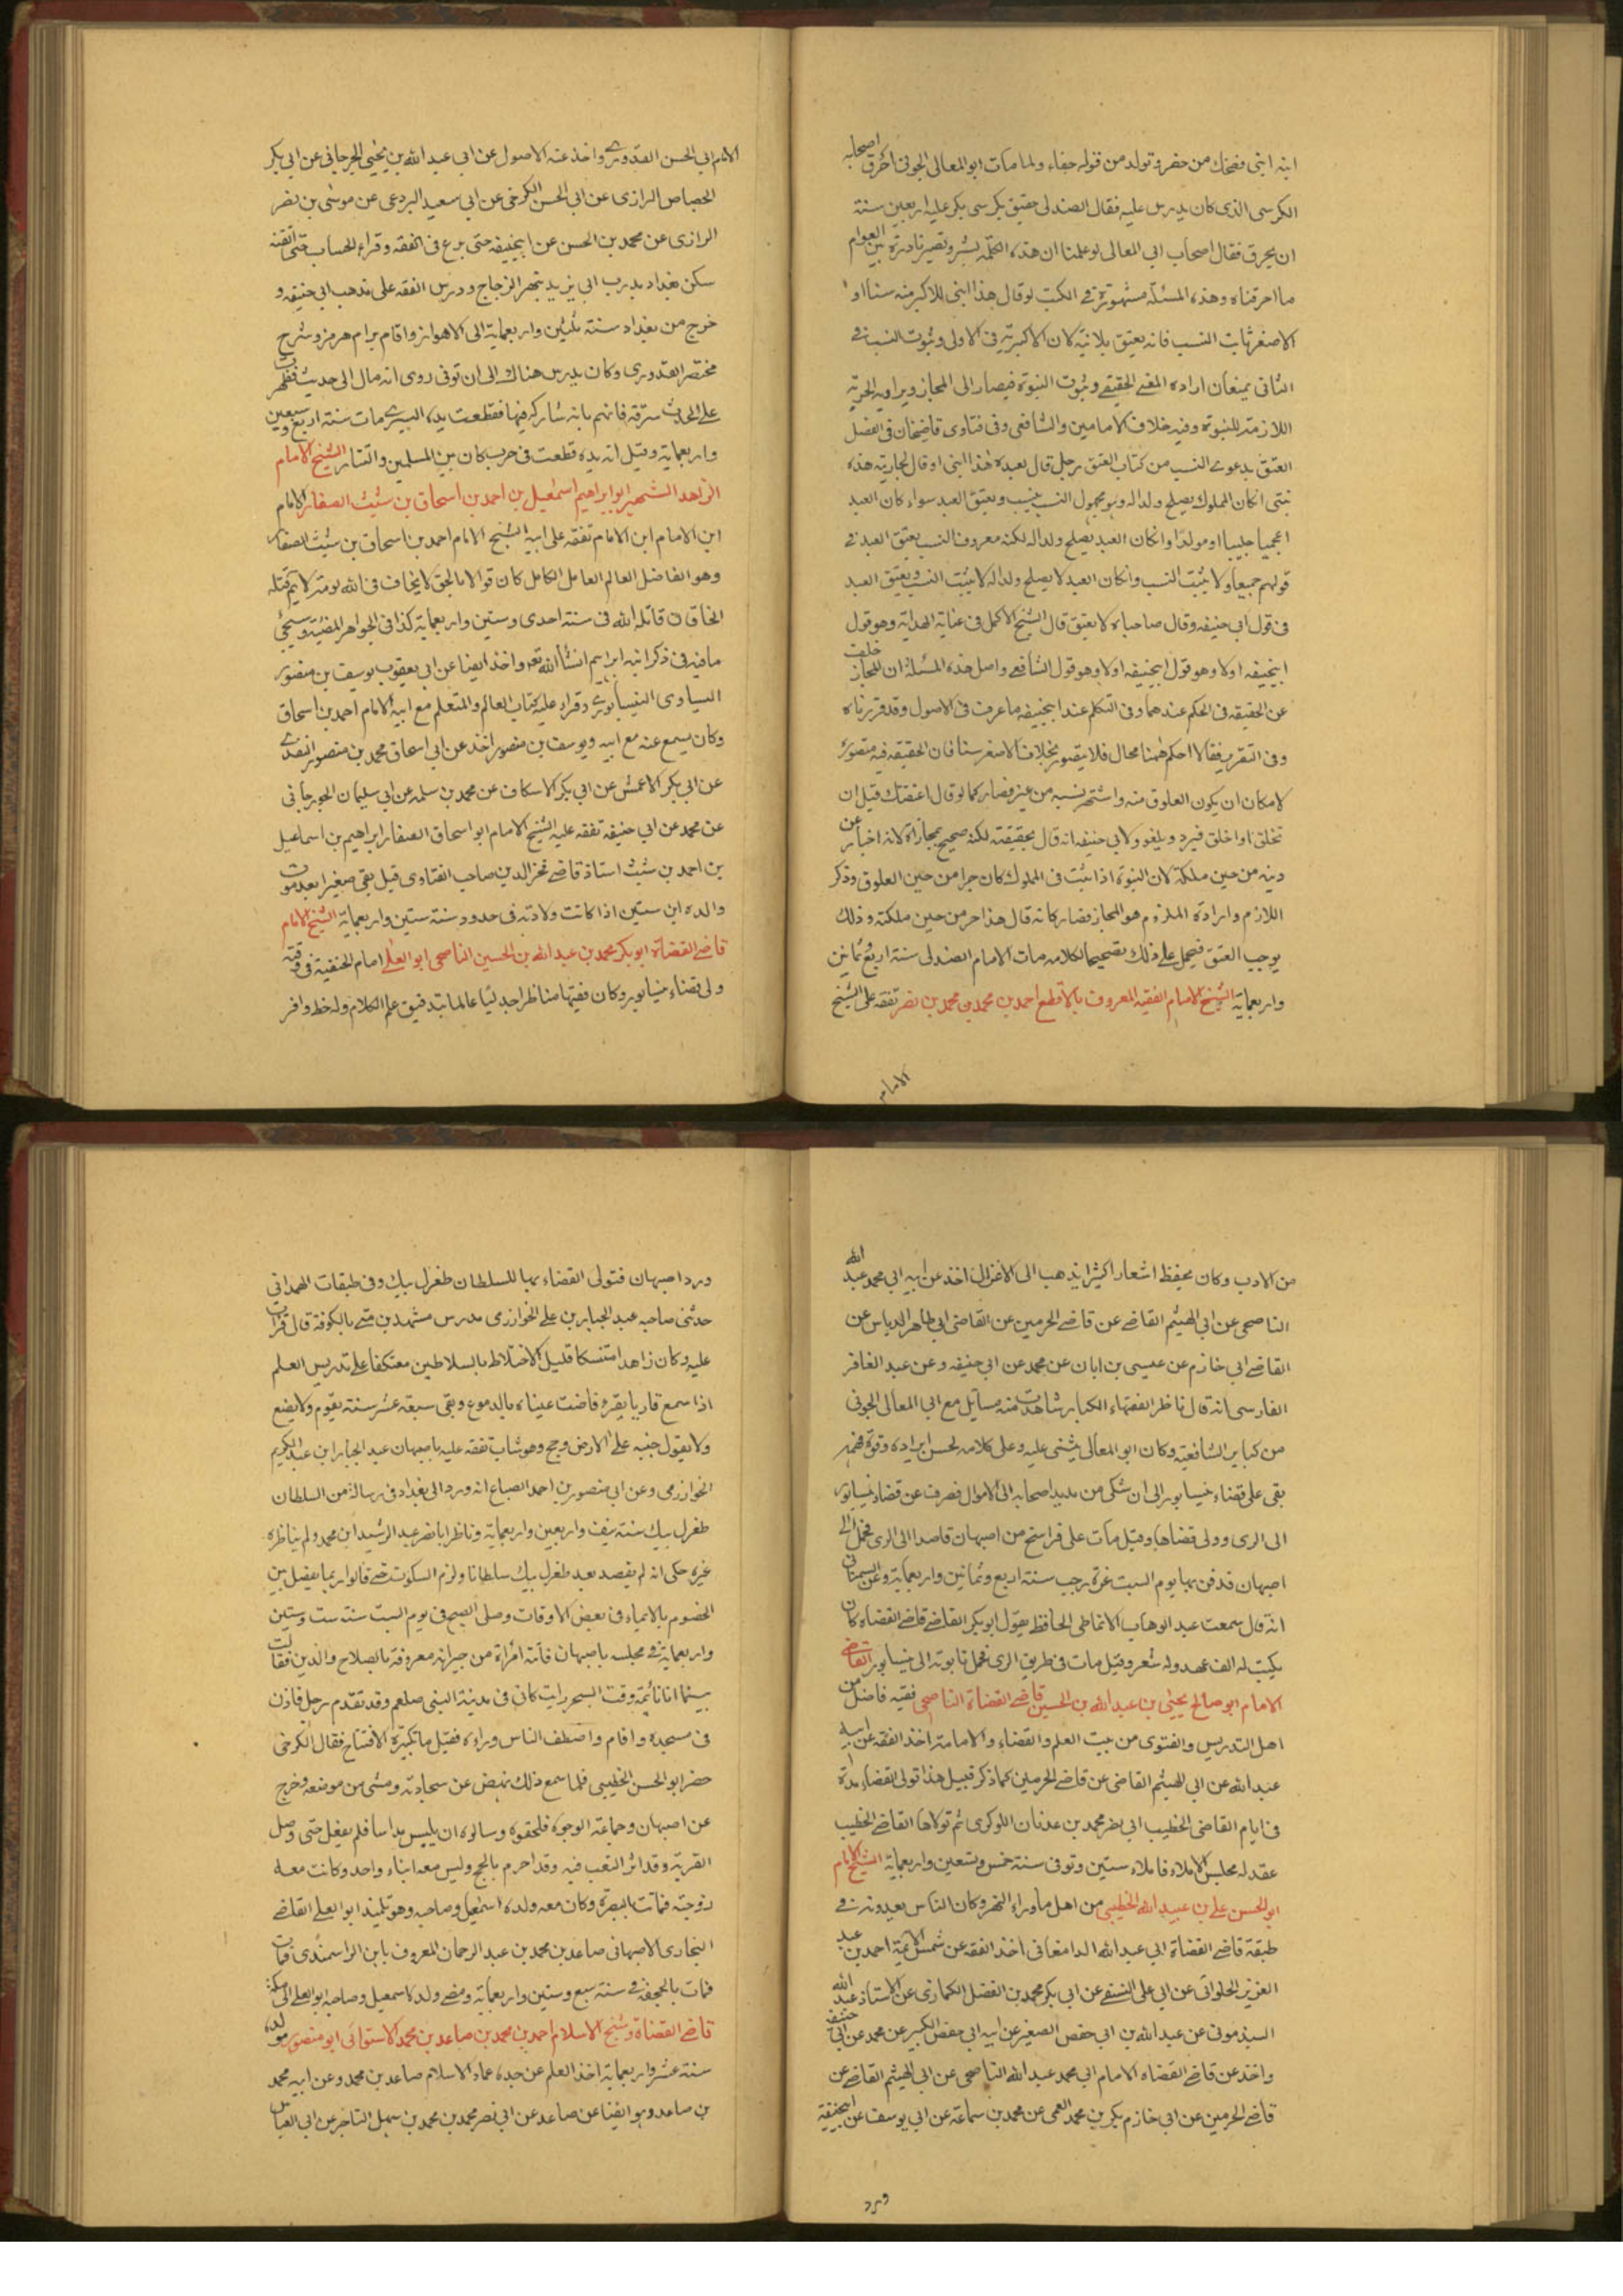 ابنه ابنى فضحك من حضر وتولد من قوله جفاء ولما مات ابو المعالى الجوينى احرق اصحابه
الكرسى الذى كان يدرس عليه فقال الصندلى حقيق بكرسى يكر عليه اربعين سنة
ان يحرق فقال اصحاب ابى المعالى لو علمنا ان هذه الكلمة تشر وتصير نادرة بين العوام
ما احرقناه وهذه المسئلة مشهورة فى الكتب لو قال هذا ابنى للاكبر منه سنا او
الاصغر ثابت النسب فانه يعتق بلا نية لان الاكبرية فى الاولى وثبوت النسب فى
الثانى يمنعان ارادة المعنى الحقيقى وثبوت البنوة فيصار الى المجاز ويراد به الحرية
اللازمة للبنوة وفيه خلاف الامامين والشافعى وفى فتاوى قاضيخان فى فصل
العتق بدعوى النسب من كتاب العتق رجل قال لعبده هذا ابنى او قال لجاريته هذه
بنتى ان كان المملوك يصلح ولدا له وهو مجهول النسب ينسب ويعتق العبد سواء كان العبد
اعجميا جليبا او مولدا وان كان العبد يصلح ولدا له لكنه معروف النسب يعتق العبد فى
قولهم جميعا ولا يثبت النسب وان كان العبد لا يصلح ولدا له لا يثبت النسب ويعتق العبد
فى قول ابى حنيفه وقال صاحباه لا يعتق قال الشيخ الاكمل فى عناية الهداية وهو قول
ابيحنيفه اولا وهو قول ابيحنيفه اولا وهو قول الشافعى واصل هذه المسئلة ان المجاز خلف
عن الحقيقه فى الحكم عندهما وفى التكلم عند ابيحنيفه ما عرف فى الاصول وقد قررناه
وفى التقرير فقالا احكم ههنا محال فلا يتصور بخلاف الاصغر سنا فان الحقيقه فيه متصور
لامكان ان يكون العلوق منه واشتهر نسبه من غيره فصار كما لو قال اعتقتك قبل ان
تخلق او اخلق فيرد ويلغو ولابى حنيفه انه قال بحقيقته لكنه صحيح بمجازه لانه اخبار عن
حريته من حين ملكه لان البنوة اذا ثبتت فى المملوك كان حرا من حين العلوق وذكر
اللازم وارادة الملزوم هو المجاز فصار كانه قال هذا حر من حين ملكته وذلك
يوجب العتق فيحمل على ذلك تصحيحا لكلامه مات الامام الصندلى سنة اربع وثمانين
واربعماية الشيخ الامام الفقيه المعروف بالاقطع احمد بن محمد بن محمد بن نصر تفقه على الشيخ
الامام
الامام ابى الحسن القدورى واخذ عنه الاصول عن ابى عبد الله بن يحيى الجرجانى عن ابى بكر
الجصاص الرازى عن ابى الحسن الكرخى عن ابى سعيد البردعى عن موسى بن نصر
الرازى عن محمد بن الحسن عن ابيحنيفه حتى برع فى الفقه وقراء الحساب حتى اتقنه
سكن بغداد بدرب ابى يزيد بنهر الزجاج ودرس الفقه على مذهب ابى حنيفه و
خرج من بغداد سنة ثلثين واربعماية الى الاهواز واقام برام هرمز وشرح
مختصر القدورى وكان يدرس هناك الى ان توفى روى انه مال الى حديث فظهر
على الحدث سرقة فاتهم بانه شاركه فيها فقطعت يده اليسرى مات سنة اربع وسبعين
واربعماية وقيل ان يده قطعت فى حرب كان بين المسلمين والتتار الشيخ الامام
الزاهد الشهير ابو ابراهيم اسمعيل بن احمد بن اسحاق بن شيث الصفار الامام
ابن الامام ابن الامام تفقه على ابيه الشيخ الامام احمد بن اسحاق بن شيث الصفار
وهو الفاضل العالم العامل الكامل كان قوالا بالحق لا يخاف فى الله لومة لايم قتله
الخاقان قاتله الله فى سنة احدى وستين واربعماية كذا فى الجواهر المضيئة وسيجئ
ما فيه فى ذكر ابنه ابراهيم انشاء الله تعالى واخذ ايضا عن ابى يعقوب يوسف بن منصور
السيارى النيسابورى وقراء عليه كتاب العالم والمتعلم مع ابيه الامام احمد بن اسحاق
وكان يسمع عنه مع ابيه ويوسف بن منصور اخذ عن ابى اسحاق محمد بن منصور النقدى
عن ابى بكر الاعمش عن ابى بكر الاسكاف عن محمد بن سلمه عن ابى سليمان الجوزجانى
عن محمد عن ابى حنيفه تفقه عليه الشيخ الامام ابو اسحاق الصفار ابراهيم بن اسماعيل
بن احمد بن شيث استاذ قاضى فخر الدين صاحب الفتاوى قيل بقى صغيرا بعد موت
والده ابن سنتين اذا كانت ولادته فى حدود سنة ستين واربعماية الشيخ الامام
قاضى القضاة ابو بكر محمد بن عبد الله بن الحسين الناصحى ابو العلى امام الحنفية فى وقته
ولى قضاء نيسابور وكان فقيها مناظرا جدليا عالما بتدقيق علم الكلام وله خط وافر
من الادب وكان يحفظ اشعارا كثيرا يذهب الى الاعتزال اخذ عن ابيه ابى محمد عبد الله
الناصحى عن ابى الهيثم القاضى عن قاضى الحرمين عن القاضى ابى طاهر الدباس عن
القاضى ابى خازم عن عيسى بن ابان عن محمد عن ابى حنيفه وعن عبد الغافر
الفارسى انه قال ناظر الفقهاء الكبار شاهدت منه مسايل مع ابى المعالى الجوينى
من كبار الشافعية وكان ابو المعالى يثنى عليه وعلى كلامه لحسن ايراده وقوة فهمه
بقى على قضاء نيسابور الى ان شكى من يد اصحابه الى الاموال فصرف عن قضاء نيسابور
الى الرى وولى قضاها وقيل مات على فراسخ من اصبهان قاصدا الى الرى فحمل الى
اصبهان فدفن بها يوم السبت غرة رجب سنة اربع وثمانين واربعماية وعن السمعانى
انه قال سمعت عبد الوهاب الانماطى الحافظ يقول ابو بكر القاضى قاضى القضاه كان
يكتب له الف عهد وله شعر وقيل مات فى طريق الرى فحمل تابوته الى نيسابور القاضى
الامام ابو صالح يحيى بن عبد الله بن الحسين قاضى القضاة الناصحى فقيه فاضل من
اهل التدريس والفتوى من بيت العلم والقضاء والامامة اخذ الفقه عن ابيه
عبد الله عن ابى الهيثم القاضى عن قاضى الحرمين كما ذكر قبيل هذا تولى القضاء مدة
فى ايام القاضى الخطيب ابى نصر محمد بن عدنان اللوكرى ثم تولاها القاضى الخطيب
عقد له مجلس الاملاء فاملاء سنتين وتوفى سنة خمس وتسعين واربعماية الشيخ الامام
ابو الحسن على بن عبيد الله الخطيبى من اهل ماوراء النهر وكان الناس يعدونه فى
طبقة قاضى القضاة ابى عبد الله الدامغانى اخذ الفقه عن شمس الائمة احمد بن عبد
العزيز الحلوانى عن ابى على النسفى عن ابى بكر محمد بن الفضل الكمارى عن الاستاذ عبد الله
السبذمونى عن عبد الله بن ابى حفص الصغير عن ابيه ابى حفص الكبير عن محمد عن ابى حنيفه
واخذ عن قاضى القضاه الامام ابى محمد عبد الله الناصحى عن ابى الهيثم القاضى عن
قاضى الحرمين عن ابى خازم بكر بن محمد العمى عن محمد بن سماعة عن ابى يوسف عن ابيحنيفة
ورد
ورد اصبهان فتولى القضاء بها للسلطان طغرل بيك وفى طبقات الهمدانى
حدثنى صاحبه عبد الجبار بن على الخوارزمى مدرس مشهد بن متى بالكوفة قال قرات
عليه وكان زاهدا متنسكا قليل الاختلاط بالسلاطين معتكفا على تدريس العلم
اذا سمع قاريا يقرء فاضت عيناه بالدموع وبقى سبعة عشر سنة يقوم ولا يضع
ولا يقول جنبه على الارض وحج وهو شاب تفقه عليه باصبهان عبد الجبار ابن عبد الكريم
الخوارزمى وعن ابى منصور بن احمد الصباغ انه ورد الى بغداد فى رسالة من السلطان
طغرل بيك سنة نيف واربعين واربعماية وناظر ابا نصر عبد الرشيد ابن محمد ولم يناظره
غيره حكى انه لم يقصد بعد طغرل بيك سلطانا ولزم السكوت حتى قالوا ربما يفصل بين
الخصوم بالايماء فى بعض الاوقات وصلى الصبح فى يوم السبت سنة ست وستين
واربعماية فى مجلسه باصبهان فاتته امراة من جيرانه معروفة بالصلاح والدين فقالت
بينما انا نائمة وقت السحر رايت كانى فى مدينة النبى صلعم وقد تقدم رجل فاذن
فى مسجده واقام واصطف الناس وراءه فقيل ما تكبيرة الافتتاح فقال الكرخى
حضر ابو الحسن الخطيبى فلما سمع ذلك نهض عن سجادته ومشى من موضعه وخرج
عن اصبهان وجماعة الوجوه فلحقوه وسالوه ان يلبس مداسا فلم يفعل حتى وصل
القرية وقد اثر التعب فيه وقد احرم بالحج وليس معه ابناء واحد وكانت معه
زوجته فماتت بالبصرة وكان معه ولده اسمعيل وصاحبه وهو تلميذ ابو العلى القاضى
البخارى الاصبهانى صاعد بن محمد بن عبد الرحمان المعروف بابن الراسمندى ومات
فمات بالجحفة فى سنة سبع وستين واربعماية ومضى ولده اسمعيل وصاحبه ابو العلى الى مكة
قاضى القضاة وشيخ الاسلام احمد بن محمد بن صاعد بن محمد الاستوائى ابو منصور مولده
سنة عشر واربعماية اخذ العلم عن جده عماد الاسلام صاعد بن محمد وعن ابيه محمد
بن صاعد وهو ايضا عن صاعد عن ابى نصر محمد بن محمد بن سهل التاجر عن ابى العباس